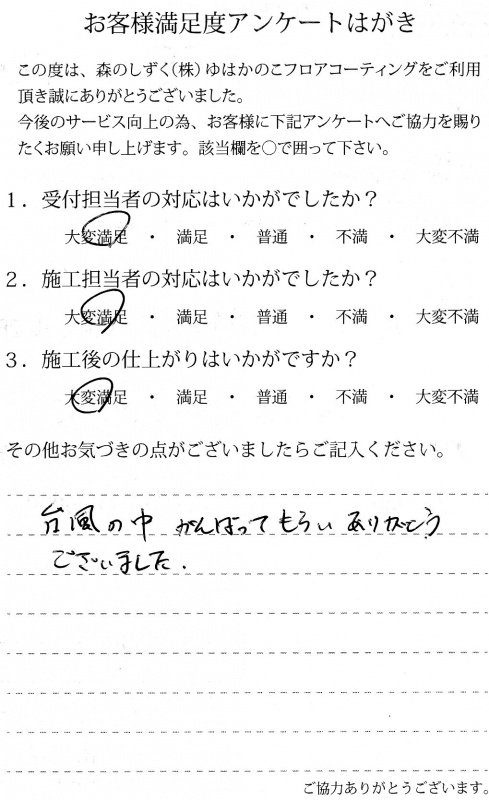 お客様満足度アンケートはがき
この度は、森のしずく(株)ゆはかのこフロアコーティングをご利用
頂き誠にありがとうございました。
今後のサービス向上の為、お客様に下記アンケートへご協力を賜り
たくお願い申し上げます。該当欄を○で囲って下さい。
1. 受付担当者の対応はいかがでしたか？
大変満足 ・ 満足 ・ 普通 ・ 不満 ・ 大変不満
2. 施工担当者の対応はいかがでしたか？
大変満足 ・ 満足 ・ 普通 ・ 不満 ・ 大変不満
3. 施工後の仕上がりはいかがですか？
大変満足 ・ 満足 ・ 普通 ・ 不満 ・ 大変不満
その他お気づきの点がございましたらご記入ください。
台風の中 がんばってもらい ありがとう
ございました.
ご協力ありがとうございます。